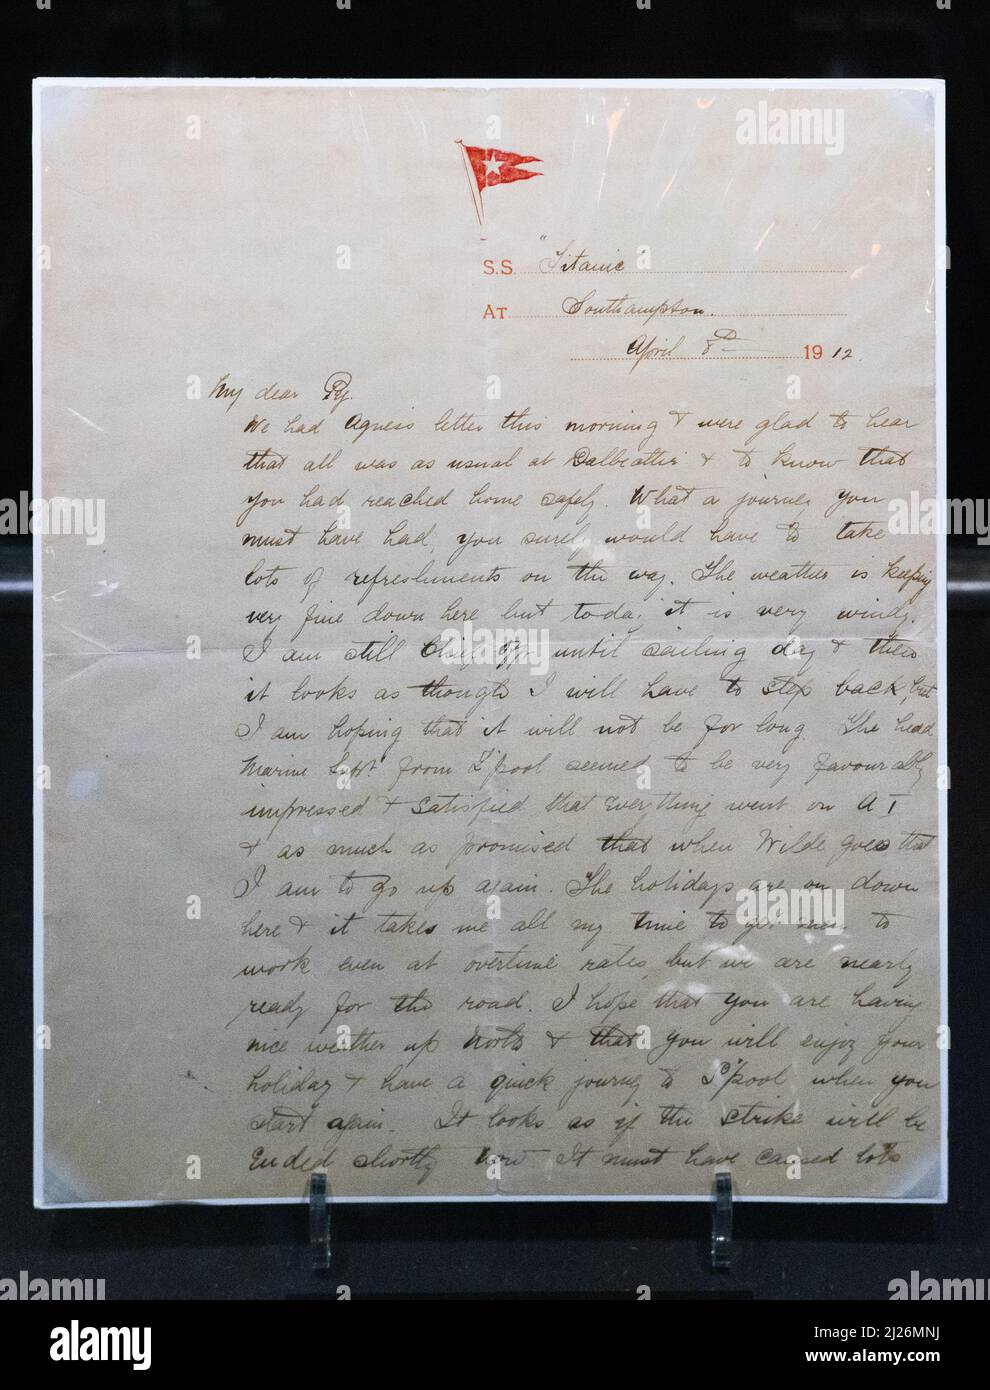 S.S. "Titanic"
AT Southampton.
April 8th 1912.
My dear Py.
We had Agness letter this morning & were glad to hear
that all was as usual at Dalbeattie & to know that
you had reached home safely. What a journey you
must have had, you surely would have to take
lots of refreshments on the way. The weather is keeping
very fine down here but today it is very windy.
I am still Chief Offr until sailing day & then
it looks as though I will have to step back, but
I am hoping that it will not be for long. The head
Marine Supt from L'pool seemed to be very favourably
impressed & satisfied that everything went on A 1
& as much as promised that when Wilde goes that
I am to go up again. The holidays are on down
here & it takes me all my time to get men to
work even at overtime rates, but we are nearly
ready for the road. I hope that you are having
nice weather up North & that you will enjoy your
holiday & have a quick journey to L'pool when you
start again. It looks as if the strike will be
Ended shortly now It must have caused lots
alamy
Image ID: 2J26MNJ
www.alamy.com